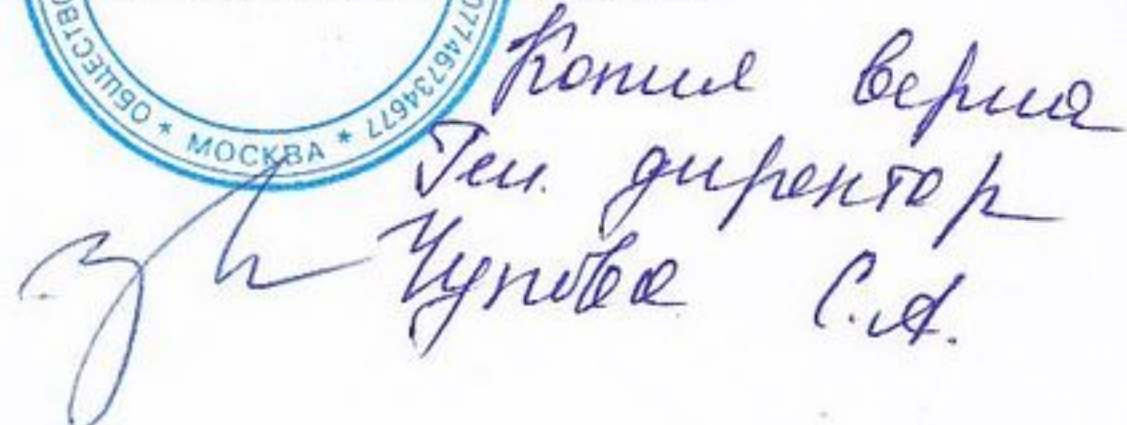 ОБЩЕСТВО * МОСКВА * 077746734677
Копия верна
Ген. директор
Чупова С.А.